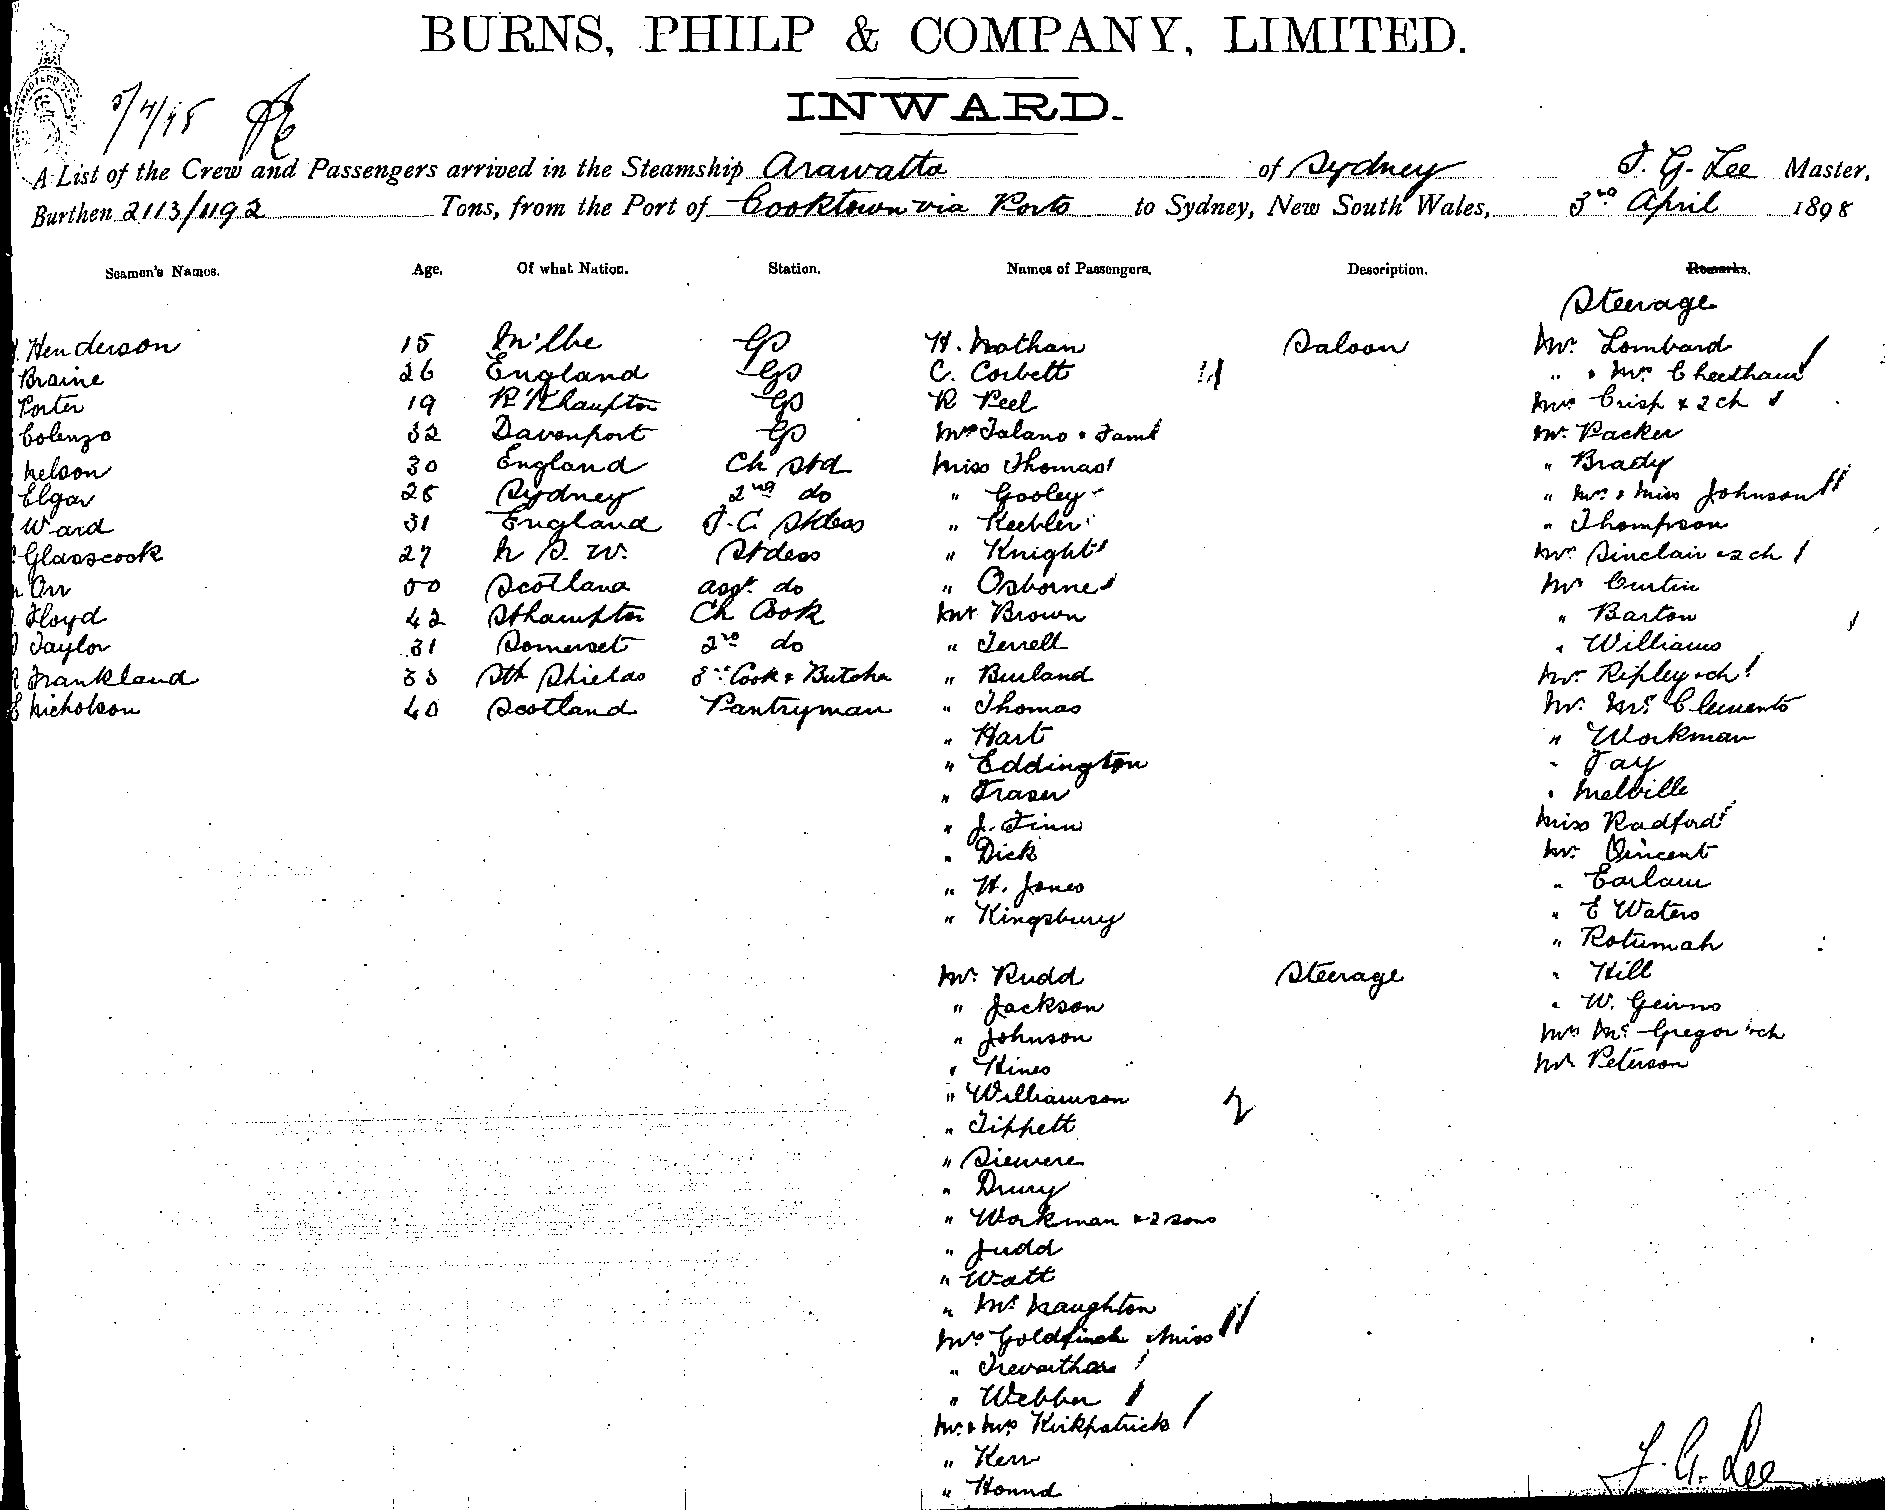 BURNS, PHILP & COMPANY, LIMITED.
INWARD.
A List of the Crew and Passengers arrived in the Steamship Arawatta of Sydney T. G. Lee Master,
Burthen 2113/1192 Tons, from the Port of Cooktown via Ports to Sydney, New South Wales, 3rd April 1898
Seamen's Names. Age. Of what Nation. Station. Names of Passengers. Description. Remarks.
Steerage
Henderson 15 Milbe GS H. Nathan Saloon Mr Lombard
Braine 26 England GS C. Corbett " & Mrs Cheetham
Porter 19 R'Khampton GS R Peel Mrs Crisp & 2 ch
Colenzo 32 Davenport GS Mrs Talano & Faml Mr Packer
Nelson 30 England Ch Std Miss Thomas " Brady
Elgar 25 Sydney 2nd do " Gooley " Mrs & Miss Johnson
Ward 31 England F.C. Stdess " Keebler " Thompson
Glasscock 27 N S. W. Stdess " Knight Mrs Sinclair & 2 ch
Orr 50 Scotland asst do " Osborne Mr Curtin
Floyd 42 Sthampton Ch Cook Mr Brown " Barton
Taylor 31 Somerset 2nd do " Terrell " Williams
Frankland 33 Sth Shields 3rd Cook & Butcher " Burland Mrs Ripley & ch
Nicholson 40 Scotland Pantryman " Thomas Mr McClements
" Hart " Workman
" Eddington " Tay
" Fraser " Melville
" J. Finn Miss Radford
" Dick Mr Vincent
" H. Jones " Earlam
" Kingsbury " E Waters
" Rotumah
Mr Rudd Steerage " Hill
" Jackson " W. Geirns
" Johnson Mrs McGregor & ch
" Hines Mr Peterson
" Williamson
" Tippett
" Siewere
" Drury
" Workman & 2 sons
" Judd
" Watt
" McNaughton
Mrs Goldfinch & Miss
" Trevarthan
" Webber
Mr & Mrs Kirkpatrick
" Kerr
" Hound
T. G. Lee